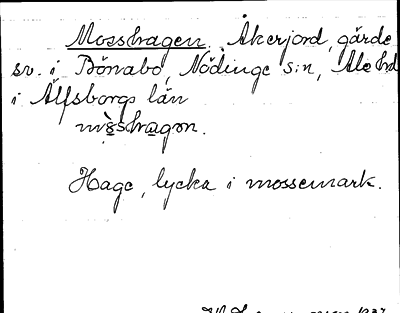 Mosshagen. Åkerjord, gärde
sv. i Bönabo, Nödinge sn, Ale hd
i Älfsborgs län
mòsshagǝn.
Hage, lycka i mossemark.